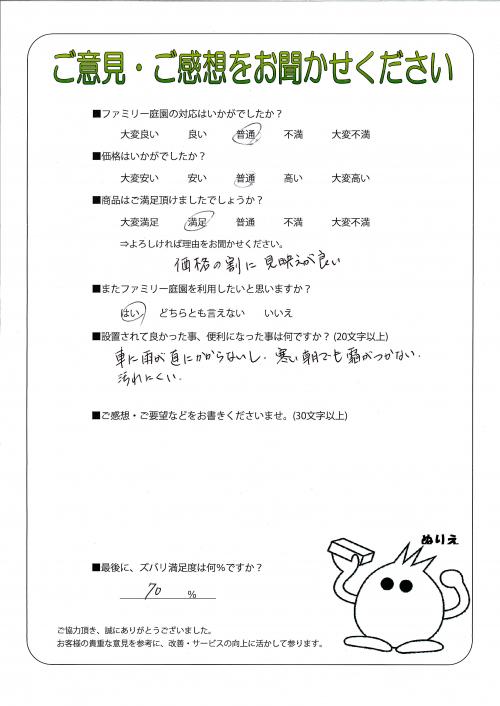 ご意見・ご感想をお聞かせください
■ファミリー庭園の対応はいかがでしたか？
大変良い 良い 普通 不満 大変不満
■価格はいかがでしたか？
大変安い 安い 普通 高い 大変高い
■商品はご満足頂けましたでしょうか？
大変満足 満足 普通 不満 大変不満
⇒よろしければ理由をお聞かせください。
価格の割に見映えが良い
■またファミリー庭園を利用したいと思いますか？
はい どちらとも言えない いいえ
■設置されて良かった事、便利になった事は何ですか？(20文字以上)
車に雨が直にかからないし、寒い朝でも霜がつかない。
汚れにくい。
■ご感想・ご要望などをお書きくださいませ。(30文字以上)
ぬりえ
■最後に、ズバリ満足度は何％ですか？
70 %
ご協力頂き、誠にありがとうございました。
お客様の貴重な意見を参考に、改善・サービスの向上に活かして参ります。